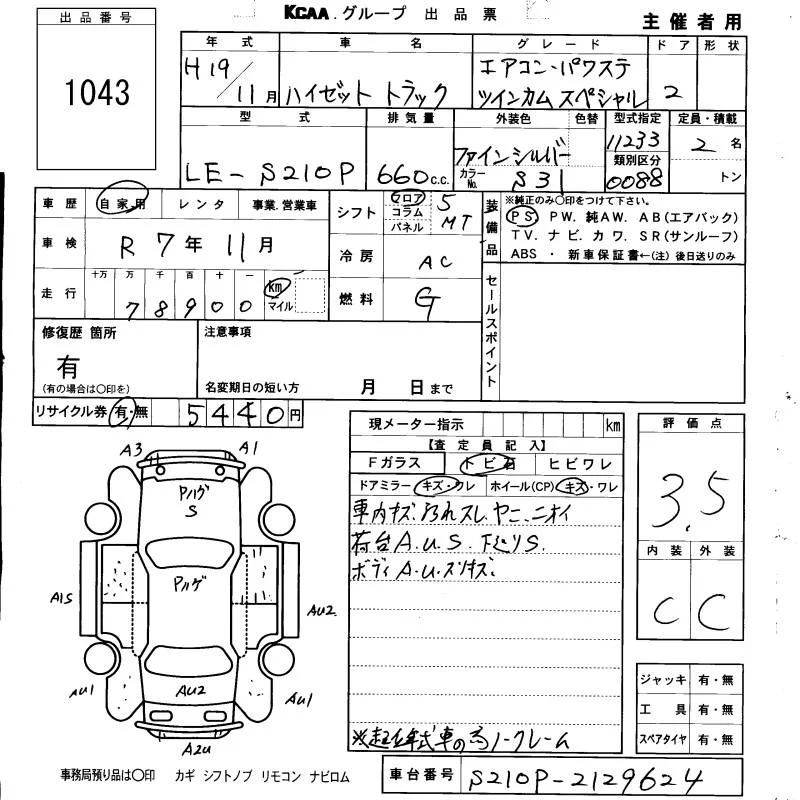 KCAA.グループ 出品票
主催者用
出品番号
1043
年式 車名 グレード ドア 形状
H19/11月 ハイゼット トラック エアコン・パワステ ツインカム スペシャル 2
型式 排気量 外装色 色替 型式指定 定員・積載
LE-S210P 660c.c. ファインシルバー 11233 2名
カラーNo. S31 類別区分 0088 トン
車歴 自家用 レンタ 事業.営業車
車検 R7年11月
走行 十万 万 千 百 十 一
78900 km マイル
シフト フロア コラム パネル 5 MT
冷房 AC
燃料 G
装備品
※純正のみ〇印をつけて下さい。
PS PW. 純AW. AB(エアバック)
TV. ナビ. カワ. SR(サンルーフ)
ABS ・ 新車保証書←(注) 後日送りのみ
セールスポイント
修復歴 箇所
有
(有の場合は〇印を)
注意事項
名変期日の短い方 月 日まで
リサイクル券 有・無 5440円
現メーター指示 km
【査定員記入】
Fガラス トビ石 ヒビワレ
ドアミラー キズ・ワレ ホイール(CP) キズ・ワレ
車内キズ.ヨゴレスレ.ヤニ、ニオイ
荷台A.U.S. 下廻りS.
ボディA.U.スリキズ.
※超低年式車の為ノークレーム
評価点
3.5
内装 外装
C C
A3 A1
Pハゲ
S
Pハゲ
A1S AU2
AU1 AU2 AU1
A2U
ジャッキ 有・無
工具 有・無
スペアタイヤ 有・無
事務局預り品は〇印 カギ シフトノブ リモコン ナビロム
車台番号 S210P-2129624